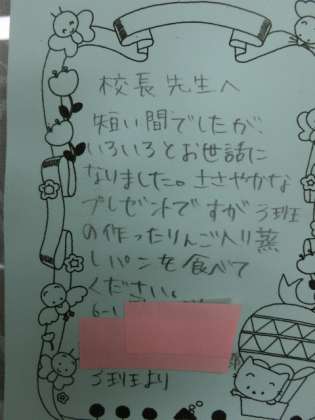 校長先生へ
短い間でしたが、
いろいろとお世話に
なりました。ささやかな
プレゼントですが3班
の作ったりんご入り蒸
しパンを食べて
ください。
6-1
3班より